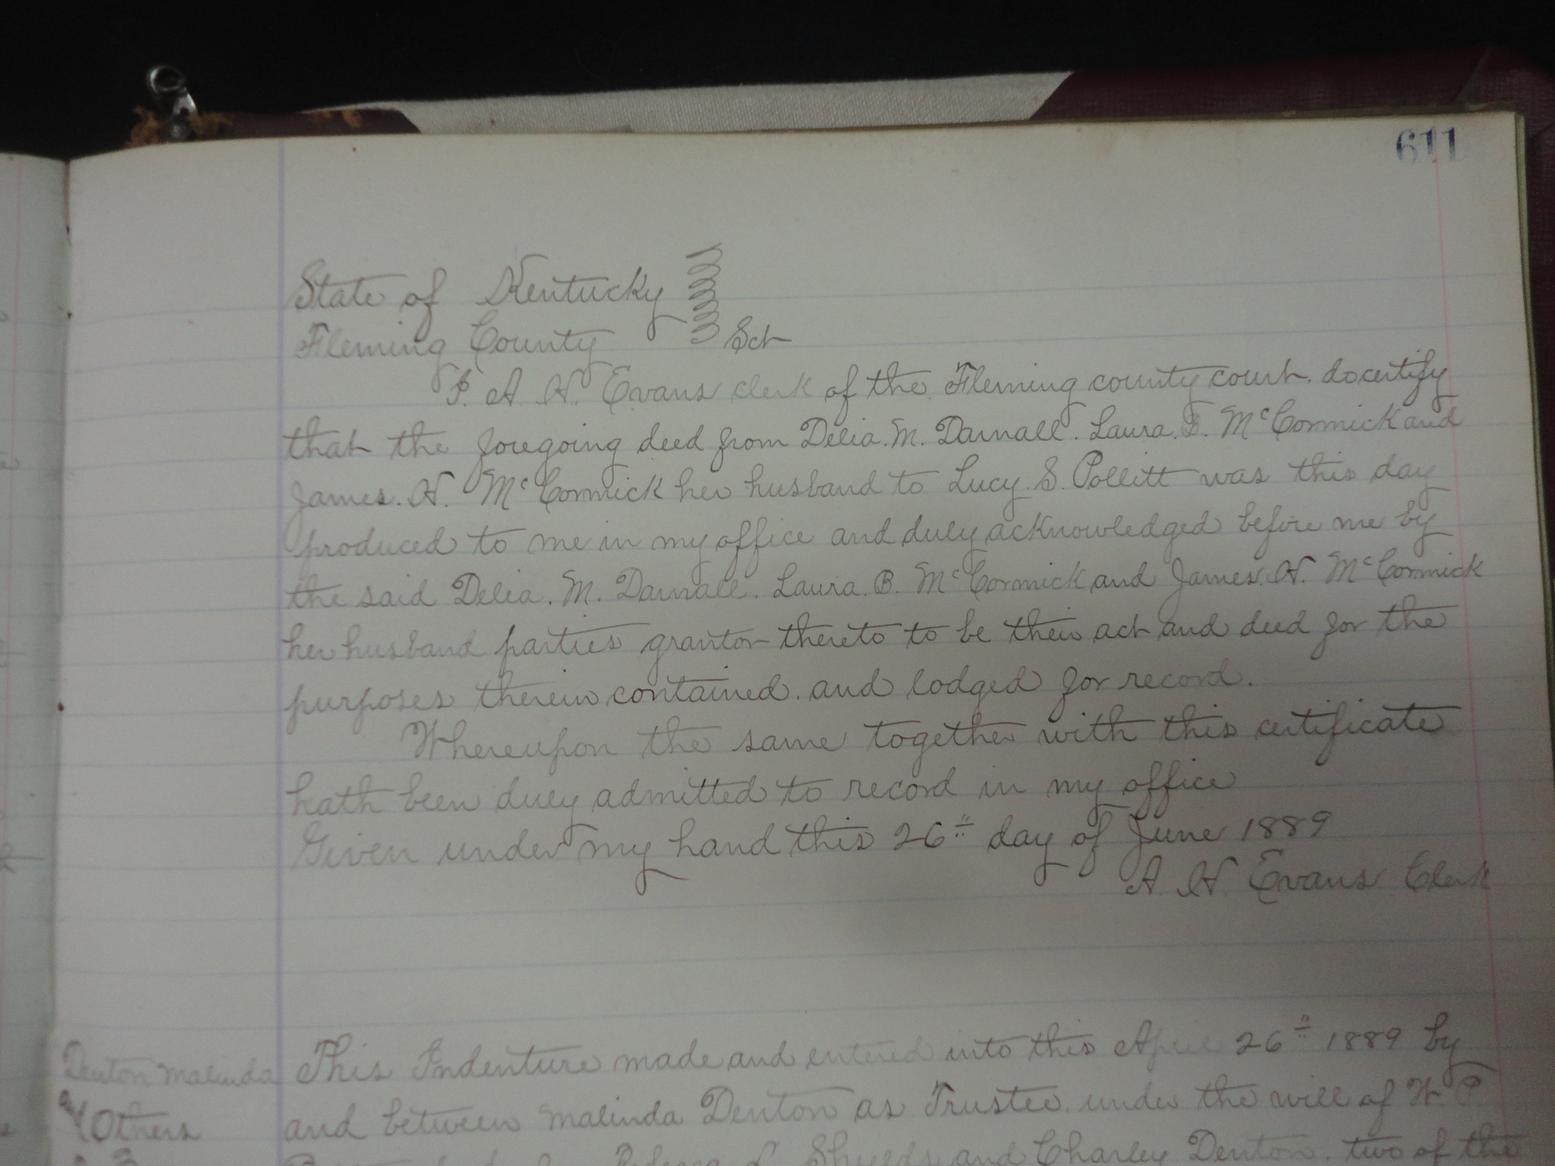 611
State of Kentucky
Fleming County Sct
I. A. H. Evans clerk of the Fleming county court. do certify
that the foregoing deed from Delia. M. Darnall. Laura. B. McCormick and
James. H. McCormick her husband to Lucy. S. Pollitt was this day
produced to me in my office and duly acknowledged before me by
the said Delia. M. Darnall. Laura. B. McCormick and James. H. McCormick
her husband parties grantor thereto to be their act and deed for the
purposes therein contained. and lodged for record.
Whereupon the same together with this certificate
hath been duly admitted to record in my office
Given under my hand this 26th day of June 1889
A. H. Evans Clerk
Denton Malinda
& Others
This Indenture made and entered into this April 26th 1889 by
and between Malinda Denton as Trustee. under the will of W. P.
and Charley Denton. two of the